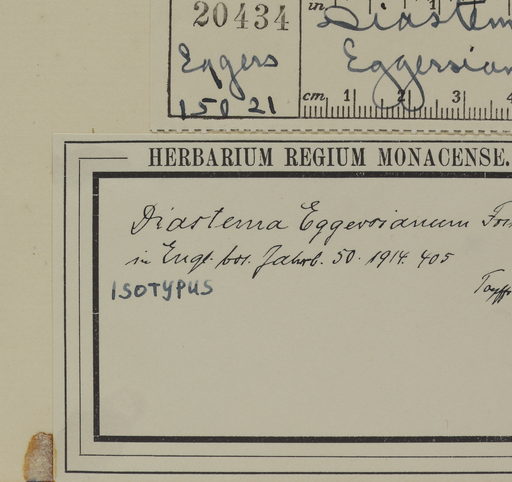 20434 in 1 Diastem
Eggers Eggersian
15021 cm 1 2 3 4
HERBARIUM REGIUM MONACENSE.
Diastema Eggersianum
in Engl. bot. Jahrb. 50. 1914. 405
ISOTYPUS